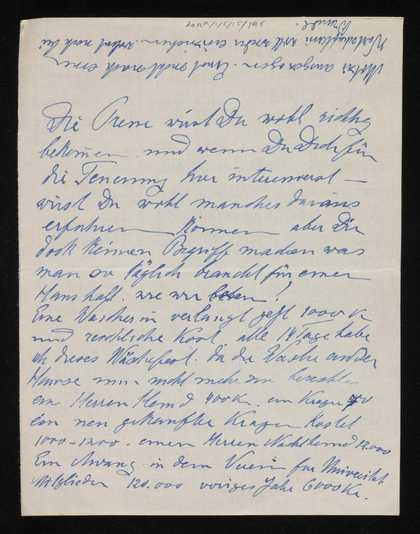 Die Presse wirst Du wohl richtig
bekommen und wenn Du Dich für
die Teuerung hier interessierst —
wirst Du wohl manches daraus
erfahren können aber Dir
doch keinen Begriff machen was
man so täglich braucht für einen
Haushalt wie wir haben!
Eine Wäscherin verlangt jetzt 1000 K
und reichliche Kost, alle 14 Tage habe
ich dieses Wäschefest. Da die Wäsche außer
Hause nun nicht mehr zu bezahlen
ein Herren Hemd 400 K. ein Kragen
ein neu gekaufter Kragen kostet
1000-1200. einen Herren Nachthemd 12.000
Ein in dem Verein für
Mitglieder 120.000 voriges Jahr 6000 K.